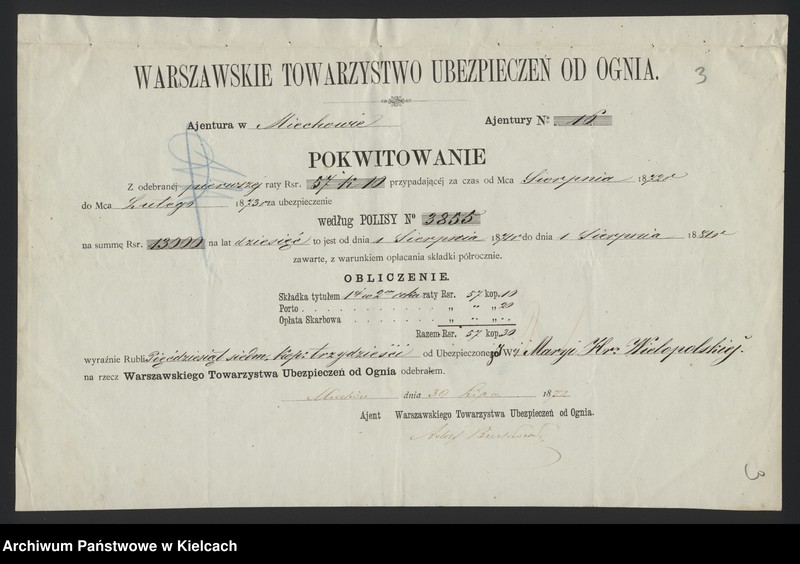 WARSZAWSKIE TOWARZYSTWO UBEZPIECZEŃ OD OGNIA.
3
Ajentura w Miechowie Ajentury № 16
POKWITOWANIE
Z odebranéj pierwszéj raty Rsr. 57 k 10 przypadającéj za czas od Mca Sierpnia 1872 r
do Mca Lutego 1873 r za ubezpieczenie
według POLISY № 3855
na summę Rsr. 13000 na lat dziesięć to jest od dnia 1 Sierpnia 1871 r do dnia 1 Sierpnia 1881 r
zawarte, z warunkiem opłacania składki półrocznie.
OBLICZENIE.
Składka tytułem 1éj w 2m roku raty Rsr. 57 kop. 10
Porto . . . . . . . . . . . „ „ „ 20
Opłata Skarbowa . . . . . . . „ .. „ ..
Razem Rsr. 57 kop. 30
wyraźnie Rubli Pięćdziesiąt siedm, kop: trzydzieści od Ubezpieczonego JW Maryi Hr: Wielopolskiéj.
na rzecz Warszawskiego Towarzystwa Ubezpieczeń od Ognia odebrałem.
Miechów dnia 30 Lipca 1872
Ajent Warszawskiego Towarzystwa Ubezpieczeń od Ognia.
3
Archiwum Państwowe w Kielcach